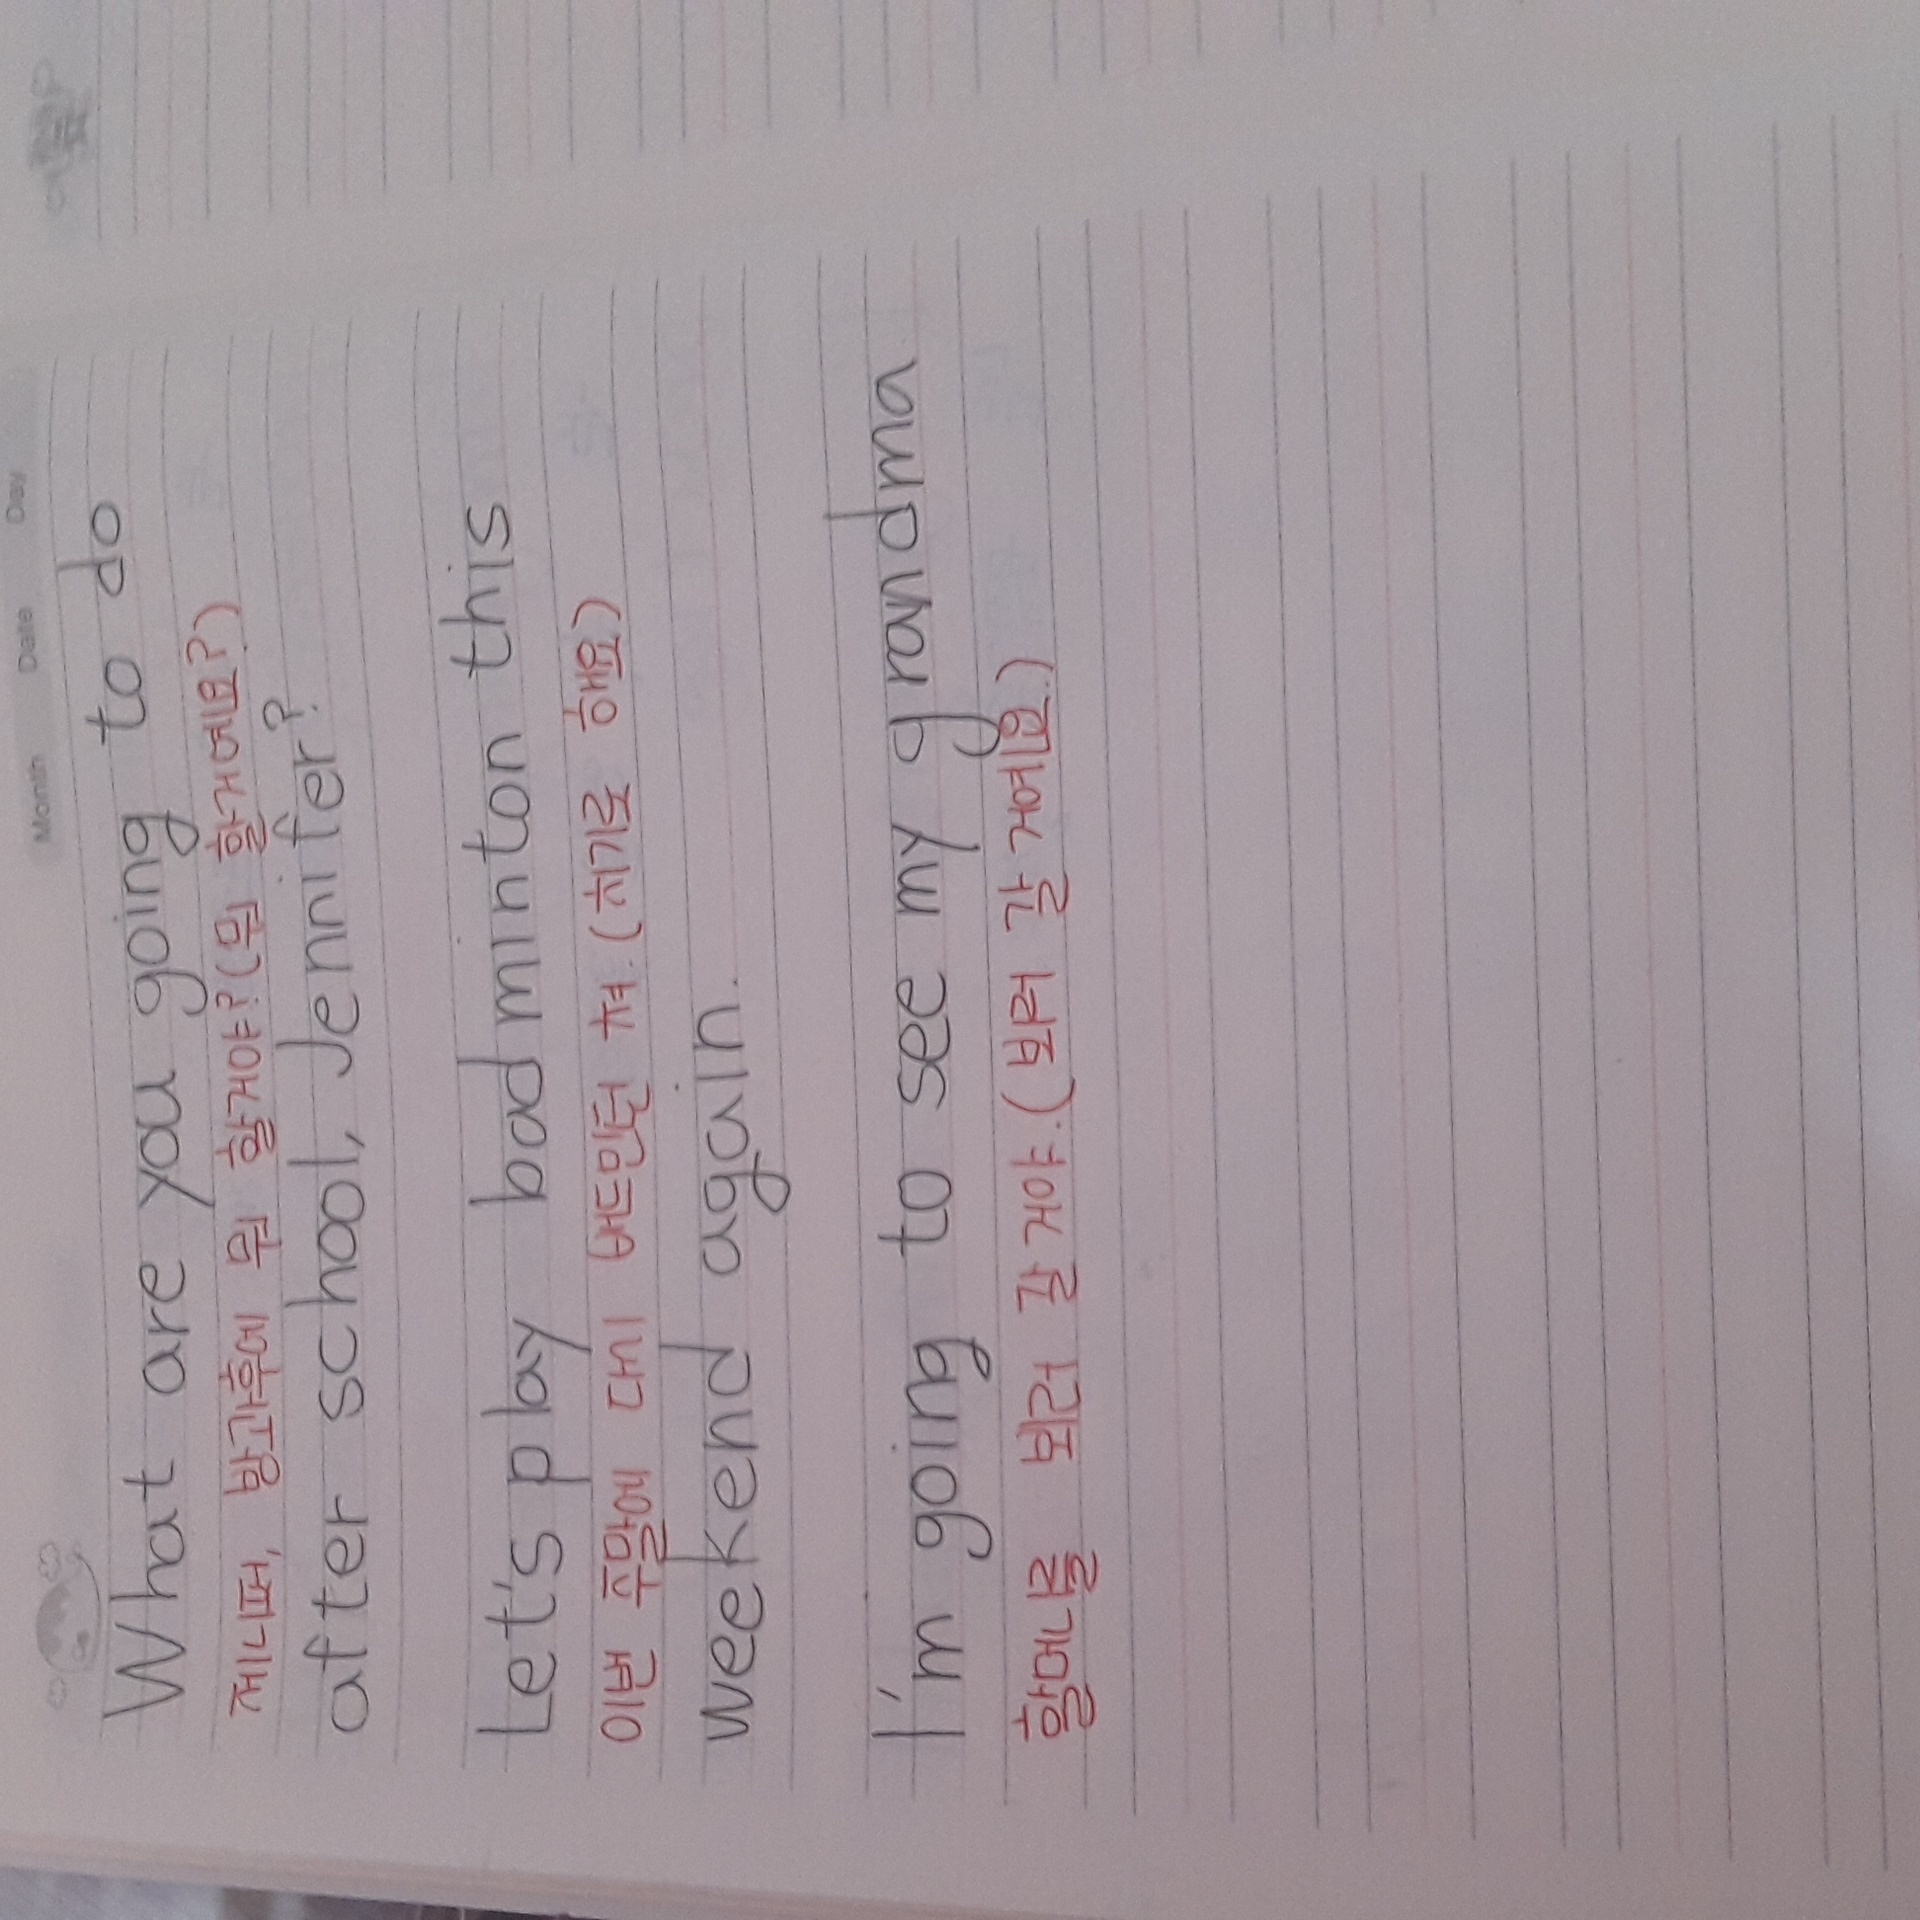 Month Date Day
What are you going to do
제니퍼, 방과후에 뭐 할거야?(뭐 할거예요?)
after school, Jennifer?
Let's play badminton this
이번 주말에 다시 배드민턴 쳐.(치기로 해요)
weekend again.
I'm going to see my grandma
할머니를 보러 갈 거야.(보러 갈 거예요.)